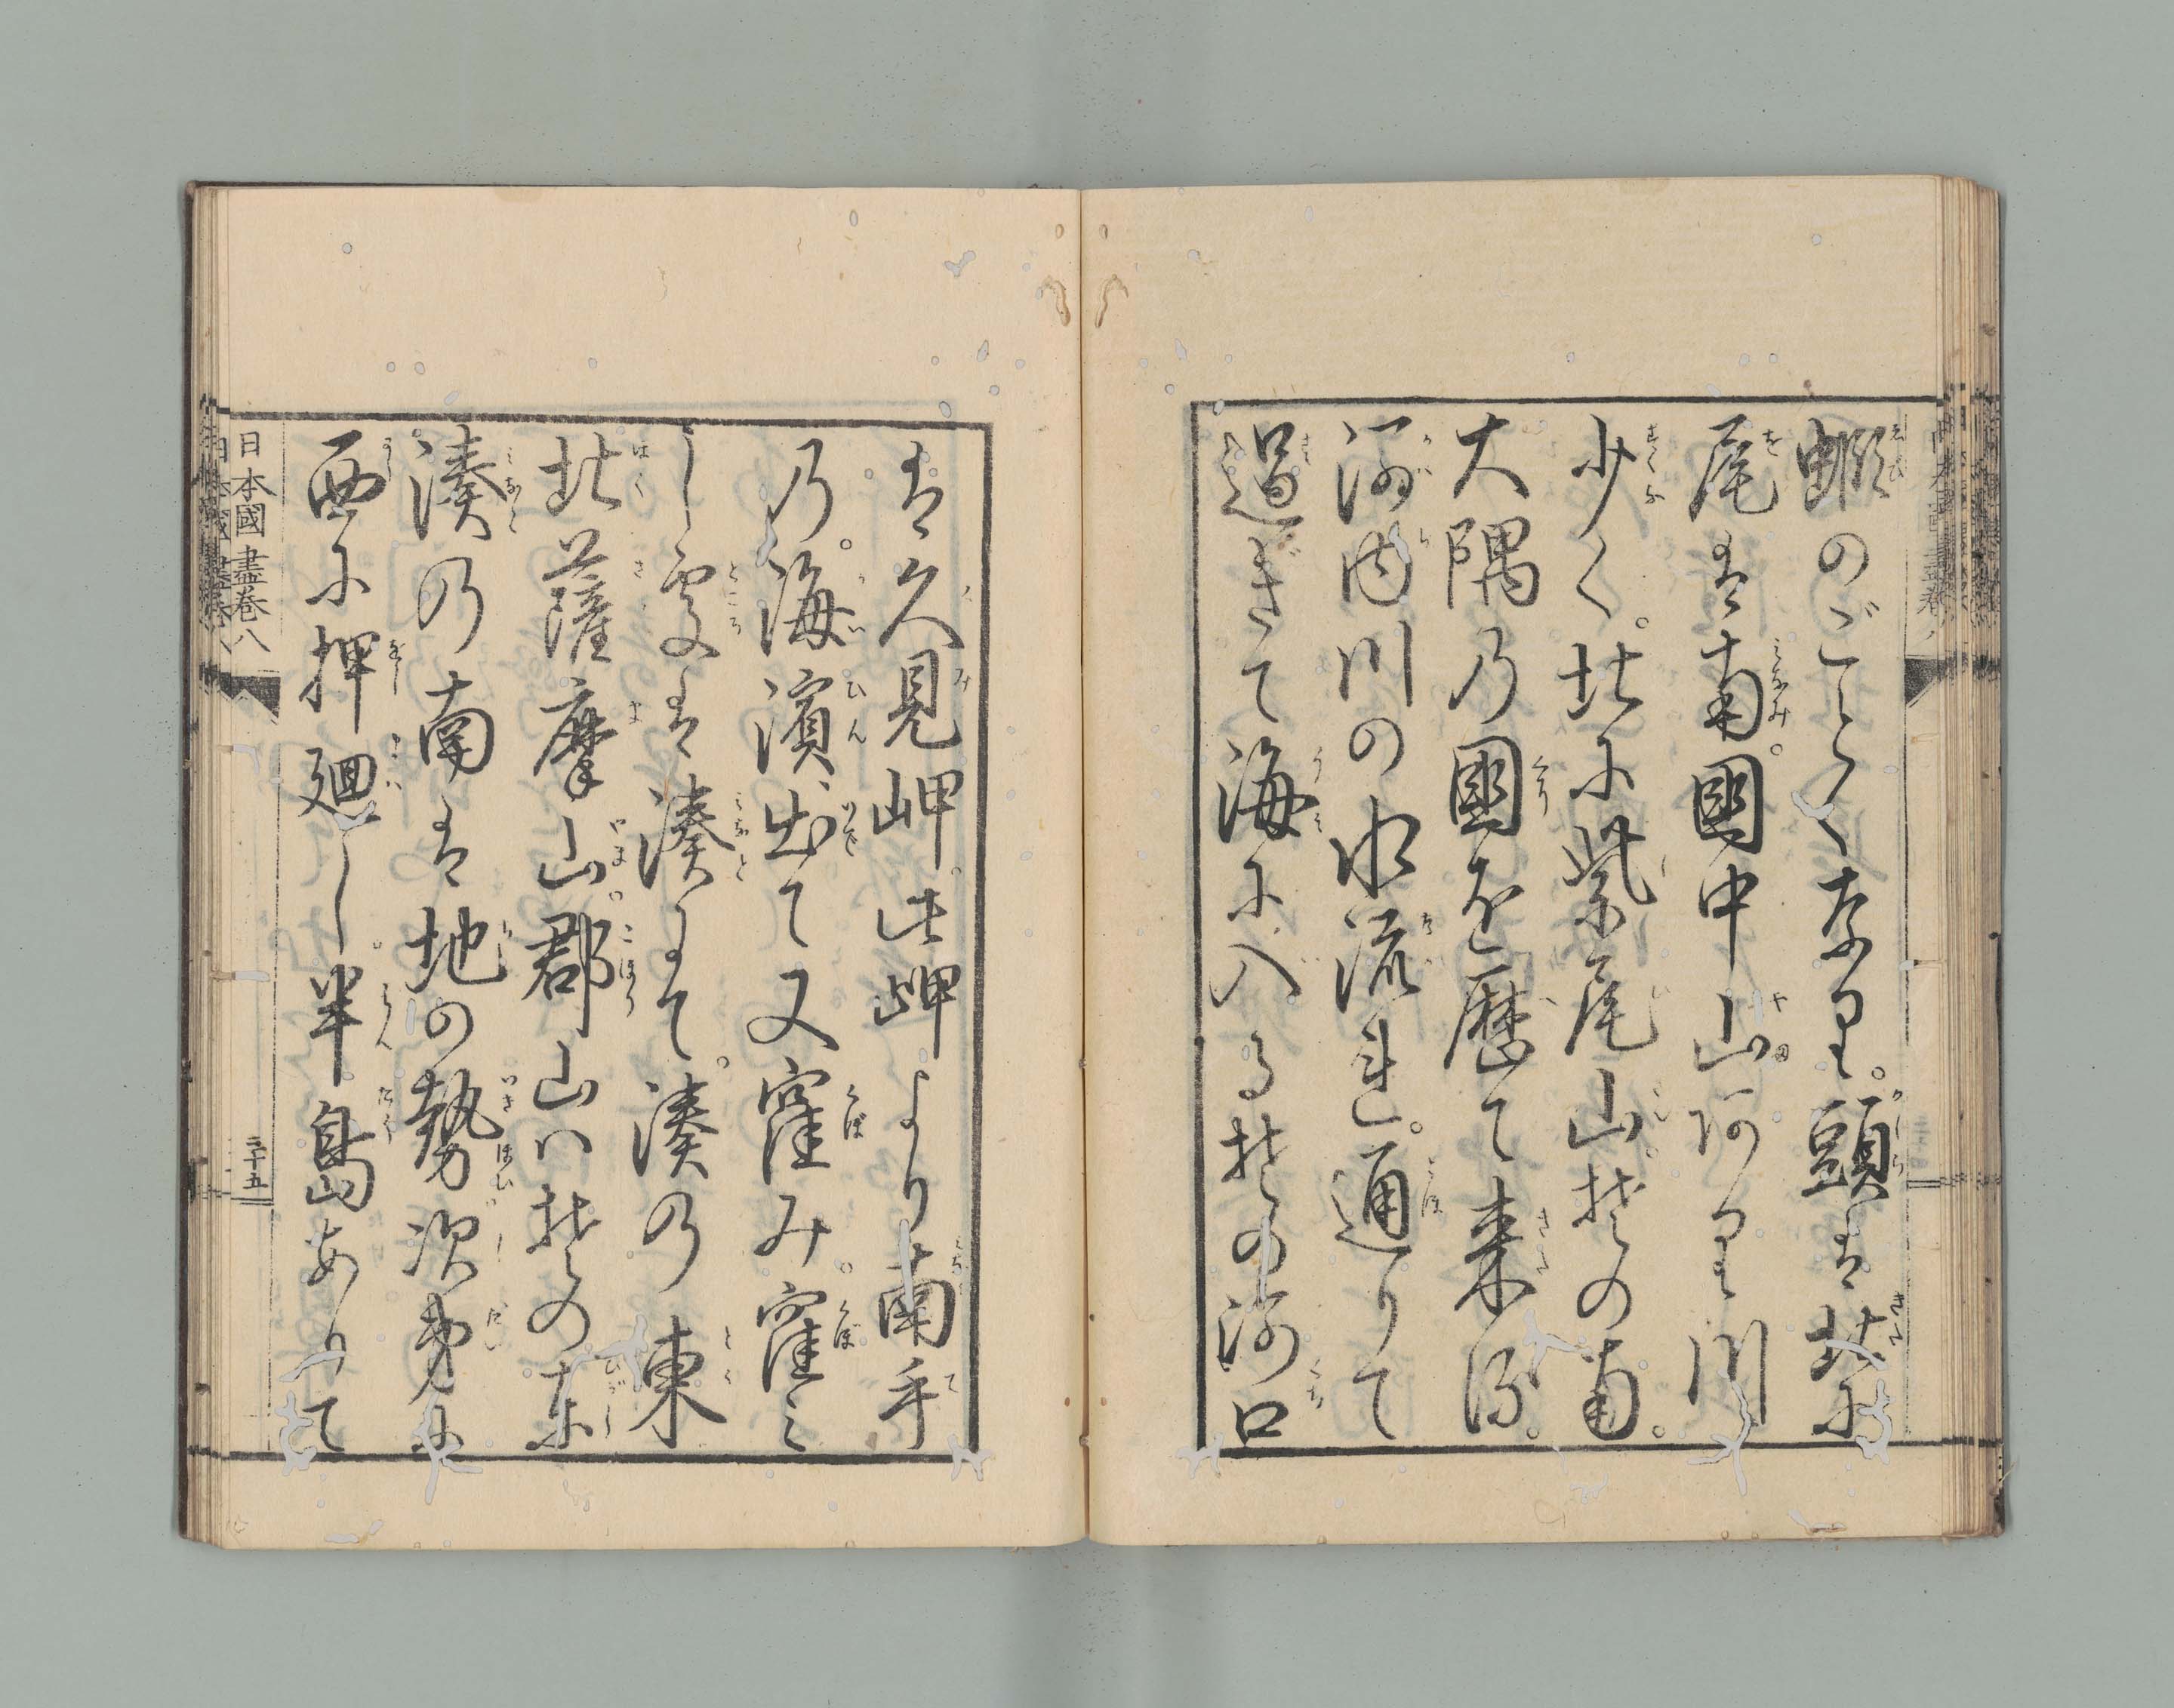 蝦のごとくなり。頭は北に
尾は南。國中山阿り川
少く。北に紫尾山。其の南。
大隅乃國を歴て来る。
河内川の水流れ。通りて
過ぎて海に入る其の河口
は久見岬。此岬より南手
乃。海濱、出て又窪み。窪み
し處は湊にて。湊乃東
北薩摩山。郡山ハ其の東
湊の南は地の勢次第に
西に押廻し。半島ありて
日本國盡巻八
三十五